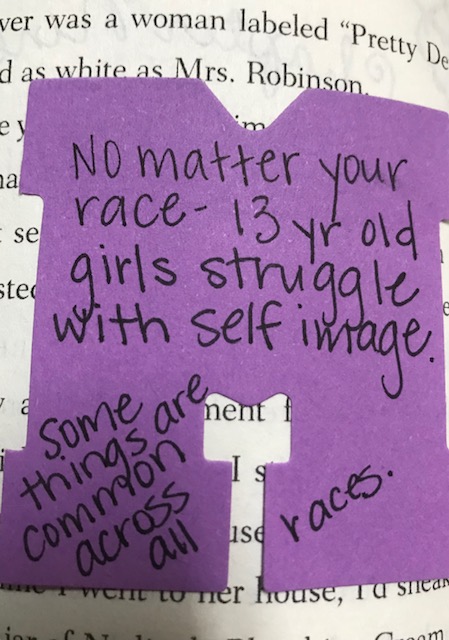 ver was a woman labeled “Pretty De
d as white as Mrs. Robinson.
e y
No matter your
race- 13 yr old
girls struggle
with self image.
Some are
things
common
across
all
races.
ment f
I s
use
I went to her house, I'd sneak